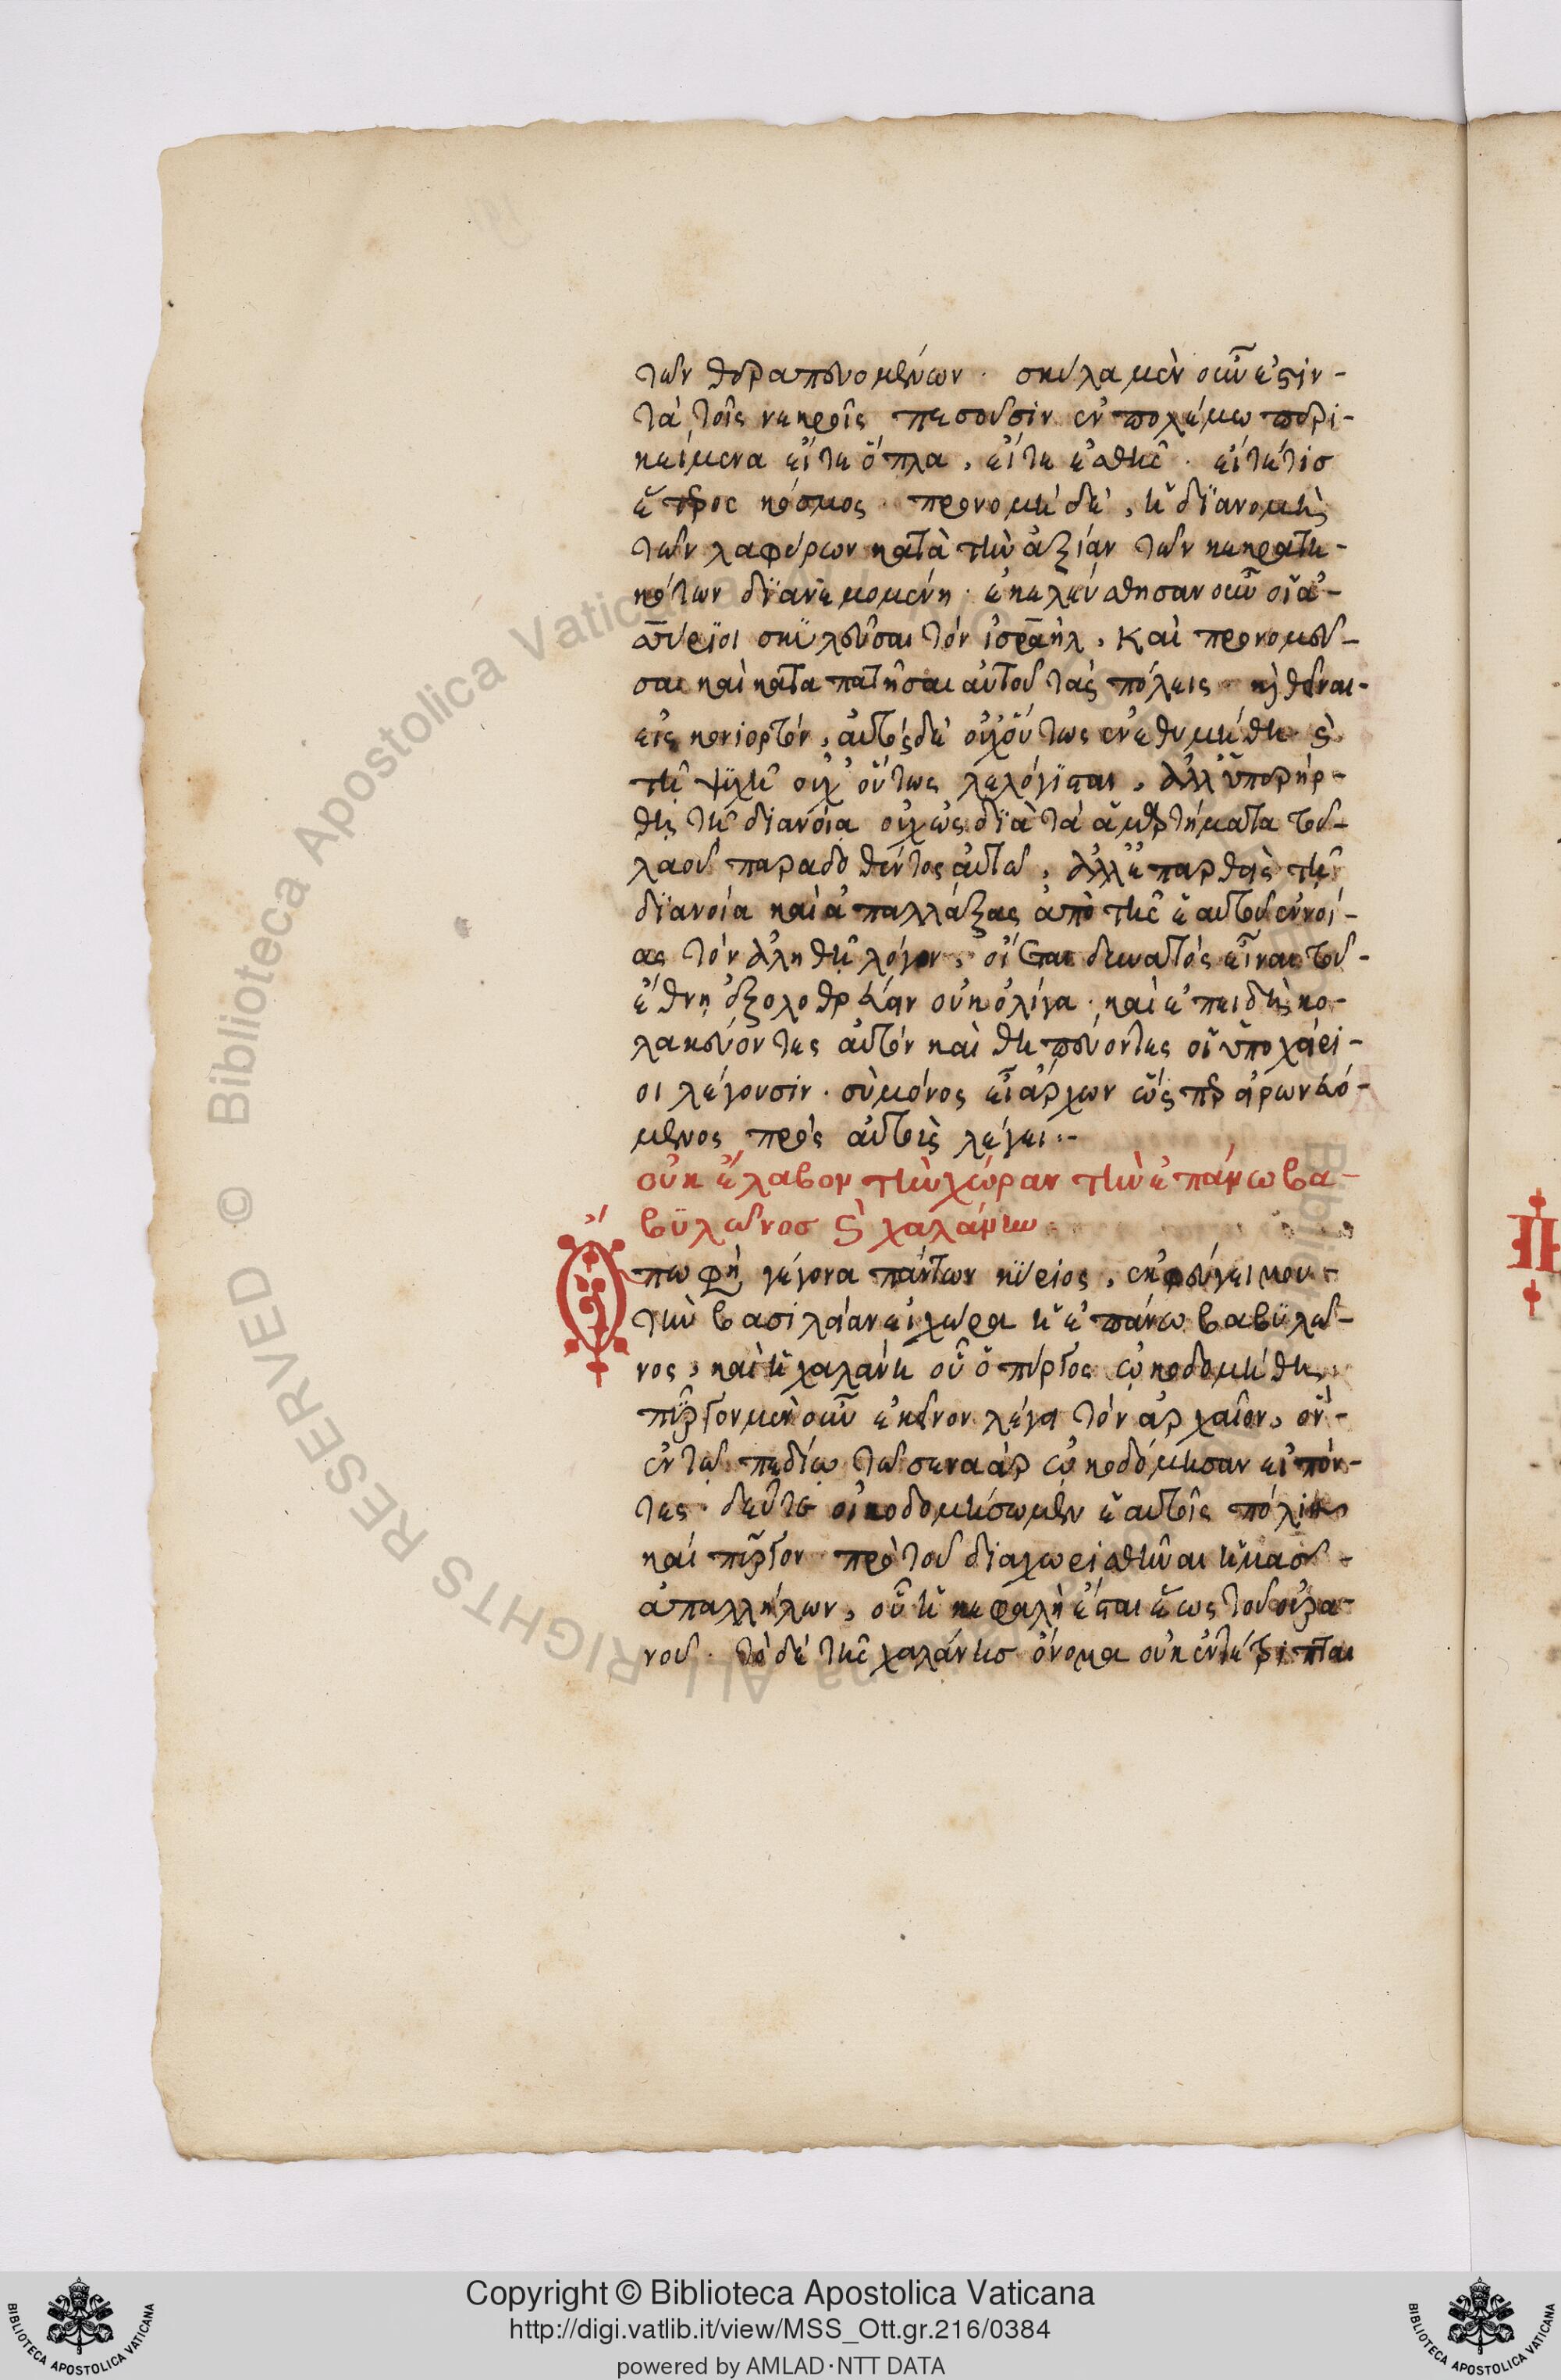 τῶν θεραπευομένων · σκύλα μὲν οὖν ἐστὶν-
τὰ τοῖς νεκροῖς πεσοῦσιν ἐν πολέμω περι-
κείμενα εἴτε ὅπλα, εἴτε ἐσθὴς · εἴτέ τισ
ἕτερος κόσμος · προνομὴ δὲ, ἡ διανομὴ
τῶν λαφύρων κατὰ τὴν ἀξίαν τῶν κεκρατη-
κότων διανεμομένη · ἐκελεύσθησαν οὖν οἱ ἀσ-
σύριοι σκυλεῦσαι τὸν ἰσραὴλ, καὶ προνομεῦ-
σαι καὶ καταπατῆσαι αὐτοῦ τὰς πόλεις καὶ θεῖναι-
εἰς κονιορτόν, αὐτὸς δὲ οὐχ οὕτως ἐνεθυμήθη καὶ
τῆ ψυχῆ οὐχ οὕτως λελόγισται, ἀλλ' ὑπερήρ-
θη τῆ διανοία οὐχ ὡς διὰ τὰ ἁμαρτήματα τοῦ-
λαοῦ παραδοθέντος αὐτῶ, ἀλλ' ἐπαρθεὶς τῆ
διανοία καὶ ἀπαλλάξας ἀπὸ τῆς ἑαυτοῦ ἐννοί-
ας τὸν ἀληθῆ λόγον, οἴεται δυνατὸς εἶναι τοῦ-
ἔθνη ἐξολοθρεύειν οὐκ ὀλίγα · καὶ ἐπειδὴ κο-
λακεύοντες αὐτὸν καὶ θωπεύοντες οἱ ὑποχείρι-
οι λέγουσιν · σὺ μόνος εἶ ἄρχων
μενος πρὸς αὐτοὺς λέγει :-
οὐκ ἔλαβον τὴν χώραν τὴν ἐπάνω βα-
βυλῶνοσ καὶ χαλάνην
Οὔπω φησὶ γέγονα πάντων κύριος, ἐκφεύγει μου-
τὴν βασιλείαν εἰ χώρα ἡ ἐπάνω βαβυλῶ-
νος, καὶ ἡ χαλάνη οὗ ὁ πύργος ὠκοδομήθη,
πύργον μὲν οὖν ἐκεῖνον λέγει τὸν ἀρχαῖον, ὃν-
ἐν τῶ πεδίω τῶ σεναὰρ ὠκοδόμησαν εἰπόν-
τες · δεῦτε οἰκοδομήσωμεν ἑαυτοῖς πόλιν
καὶ πύργον πρὸ τοῦ διαχωρισθῆναι ἡμᾶσ-
ἀπαλλήλων, οὗ ἡ κεφαλὴ ἔσται ἕως τοῦ οὐρα-
νοῦ · τὸ δὲ τῆς χαλάνησ ὄνομα οὐκ ἐντέτριπται
Copyright © Biblioteca Apostolica Vaticana
http://digi.vatlib.it/view/MSS_Ott.gr.216/0384
powered by AMLAD·NTT DATA